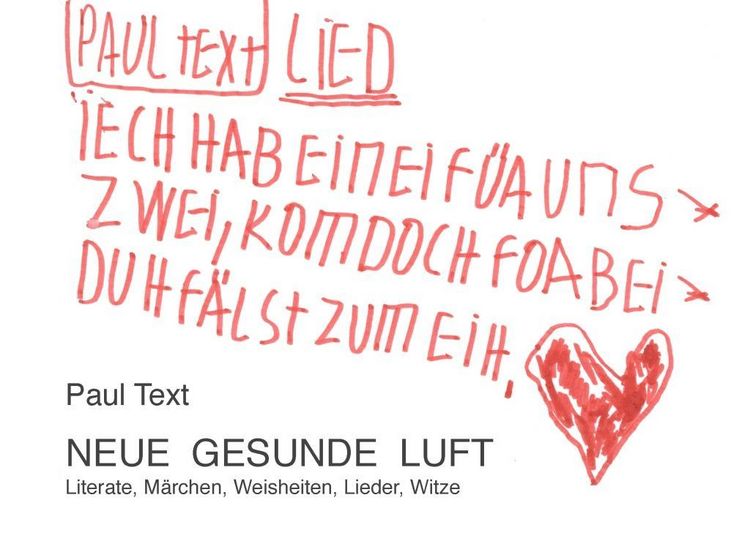 PAUL tEXt LIED
IECH HAB EiNEi FÜA UNS
ZWEi, KOM DOCH FOABEI
DUH FÄLSt ZUM EIH,
Paul Text
NEUE GESUNDE LUFT
Literate, Märchen, Weisheiten, Lieder, Witze